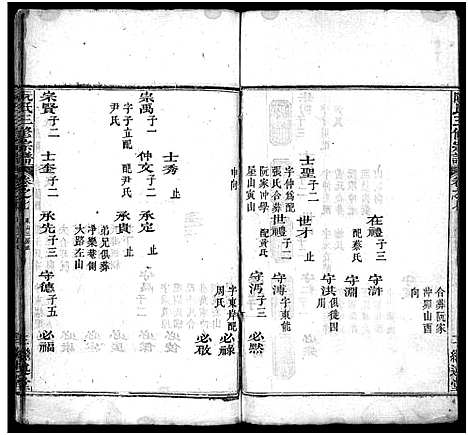 合葬阮家
冲羅山酉
向
在禮子三
配蔡氏
守滸
守淵
守洪
俱徙四
川
士聖子二
字仲爲配
張氏合葬
阮家冲學
星山寅山
申向
世才
止
世禮子二
配黃氏
守溥
字東龍
守沔子三
必黙
字東岸配
周氏
必祿
必敌
士秀
止
宗萬子二
字子立配
尹氏
仲文子二
配尹氏
承定
止
承貴
止
宗賢子二
士奎子二
承先子三
弟兄俱葬
净樂巷側
大路左山
守德子五
必福